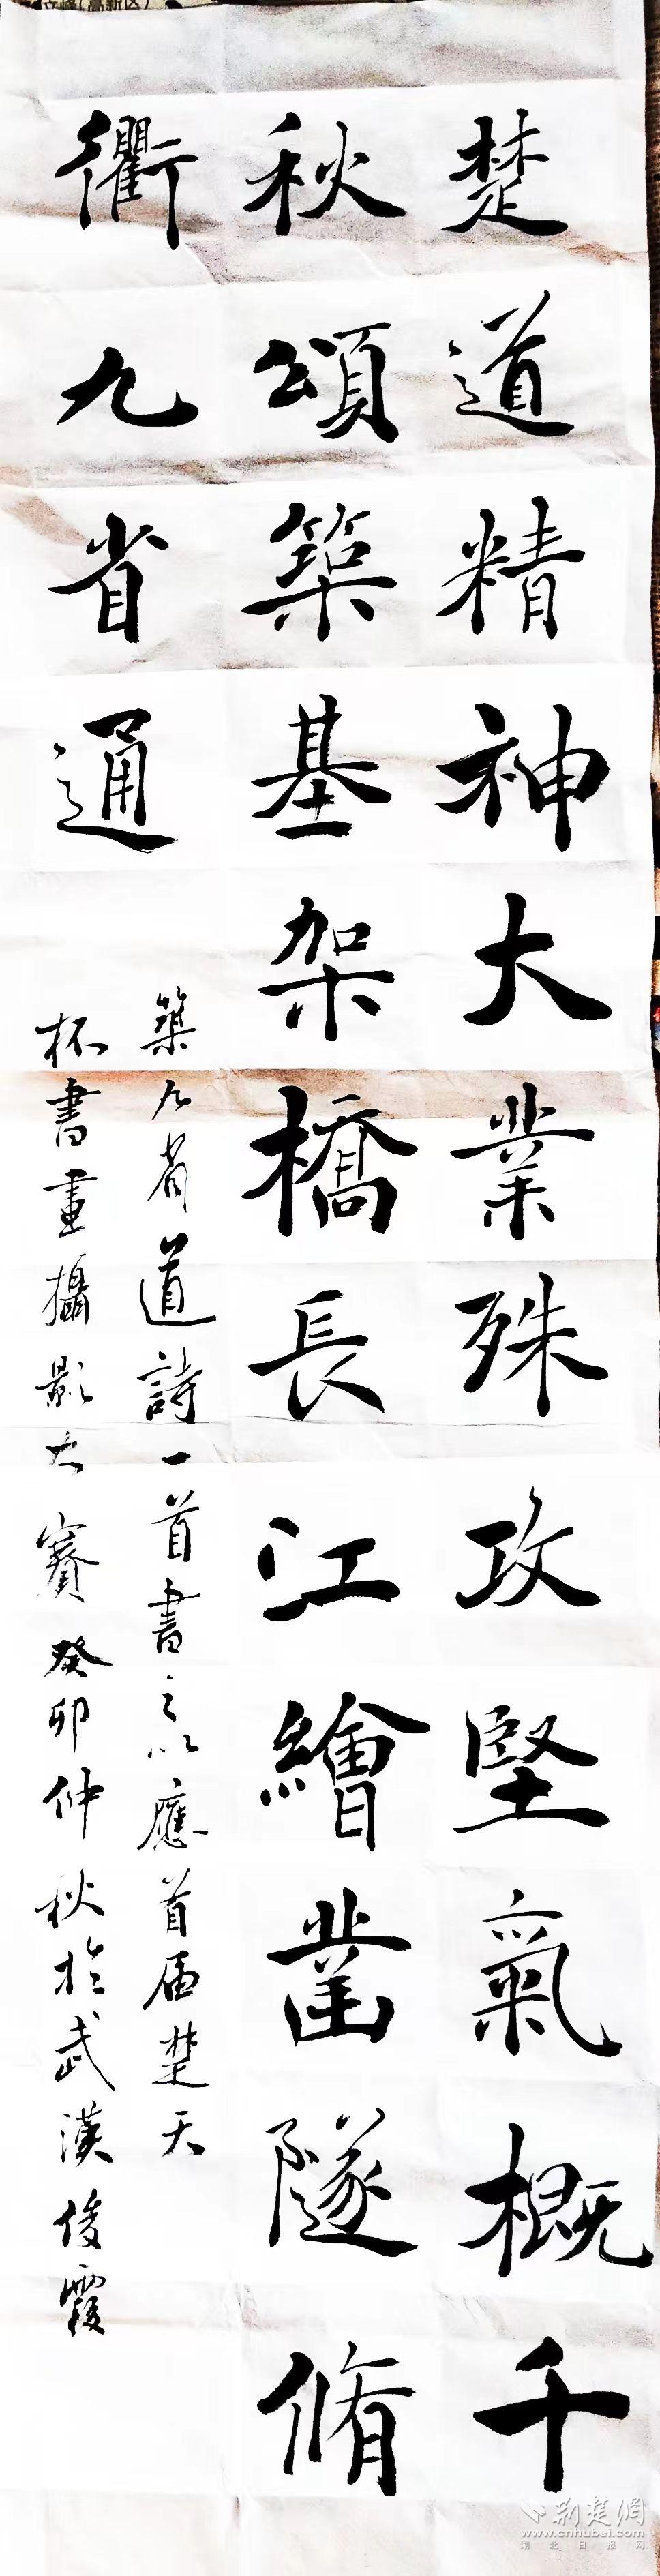 楚道精神大業殊攻堅氣概千
秋頌築基架橋長江繪鑿隧脩
衢九省通
築九省道詩一首書之以應首届楚天
杯書畫攝影大賽癸卯仲秋於武漢俊霞
荆楚網
www.cnhubei.com
湖北日报网